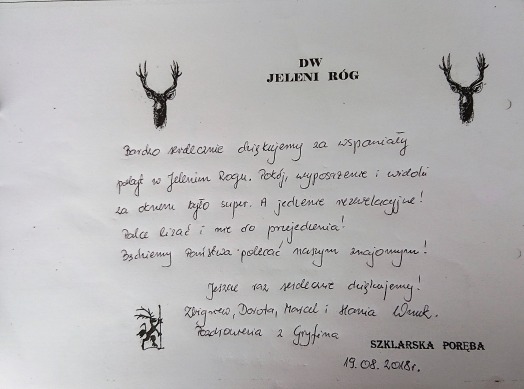 DW
JELENI RÓG
Bardzo serdecznie dziękujemy za wspaniały
pobyt w Jelenim Rogu. Pokój, wyposażenie i widoki
za oknem było super. A jedzenie rewelacyjne!
Palce lizać i nie do przejedzenia!
Będziemy Państwa polecać naszym znajomym!
Jeszcze raz serdecznie dziękujemy!
Zbigniew, Dorota, Marcel i Hania
Pozdrowienia z Gryfina
SZKLARSKA PORĘBA
19.08.2018r.